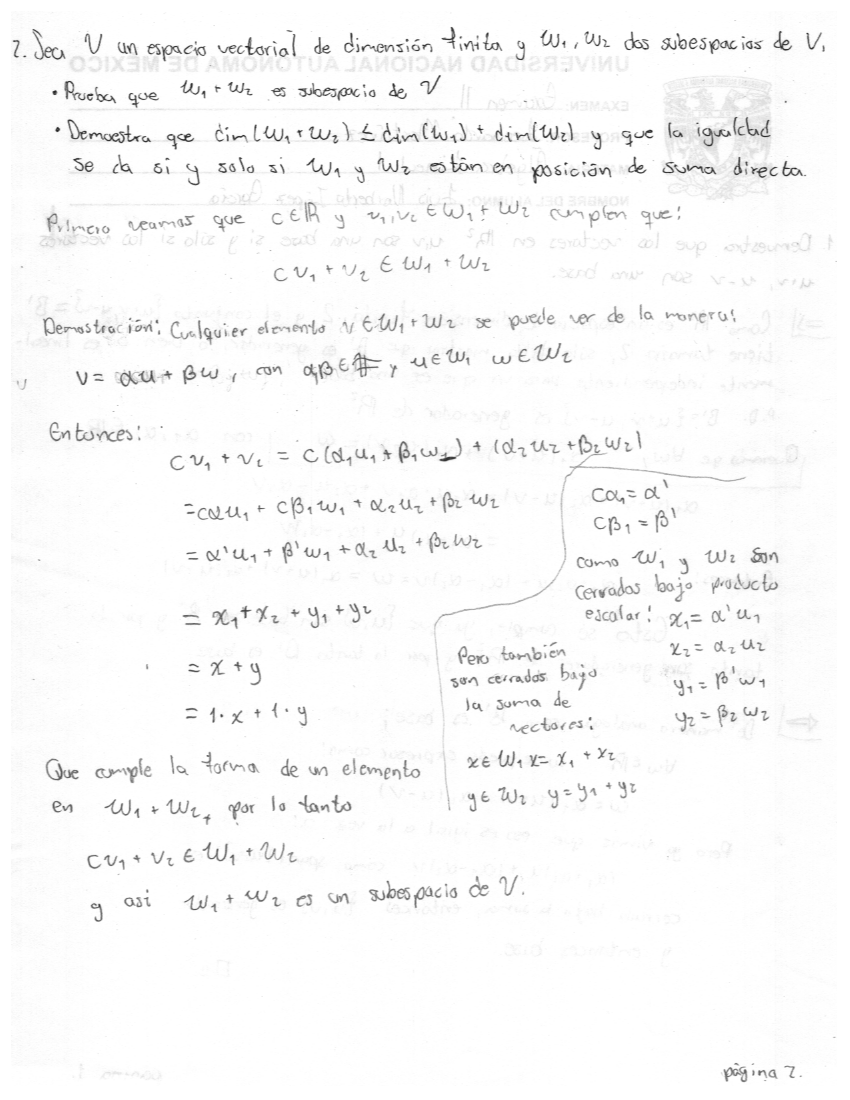 2. Sea V un espacio vectorial de dimensión finita y W₁, W₂ dos subespacios de V,
• Prueba que W₁ + W₂ es subespacio de V
• Demoestra que dim(W₁ + W₂) ≤ dim(W₁) + dim(W₂) y que la igualdad
se da si y solo si W₁ y W₂ están en posición de suma directa.
Primero veamos que c ∈ ℝ y v₁, v₂ ∈ W₁ + W₂ cumplen que:
c v₁ + v₂ ∈ W₁ + W₂
Demostración: Cualquier elemento v ∈ W₁ + W₂ se puede ver de la manera:
v = αu + βw, con α, β ∈ y u ∈ W₁ w ∈ W₂
Entonces:
c v₁ + v₂ = c(α₁u₁ + β₁w₁) + (α₂u₂ + β₂w₂)
= cαu₁ + cβ₁w₁ + α₂u₂ + β₂w₂
= α'u₁ + β'w₁ + α₂u₂ + β₂w₂
= x₁ + x₂ + y₁ + y₂
= x + y
= 1·x + 1·y
cα₁ = α'
cβ₁ = β'
como W₁ y W₂ son
cerrados bajo producto
escalar: x₁ = α'u₁
x₂ = α₂u₂
y₁ = β'w₁
y₂ = β₂w₂
Pero también
son cerrados bajo
la suma de
vectores:
x ∈ W₁ x = x₁ + x₂
y ∈ W₂ y = y₁ + y₂
Que cumple la forma de un elemento
en W₁ + W₂, por lo tanto
c v₁ + v₂ ∈ W₁ + W₂
y asi W₁ + W₂ es un subespacio de V.
página 2.